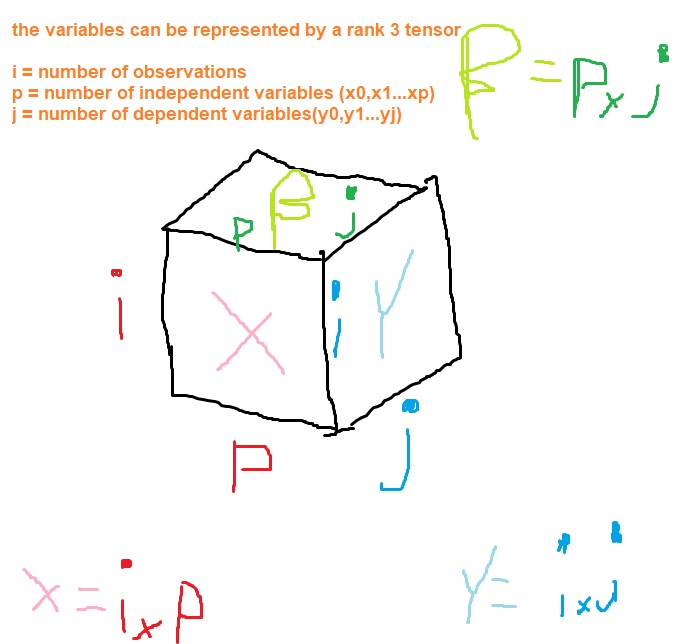 the variables can be represented by a rank 3 tensor
i = number of observations
p = number of independent variables (x0,x1...xp)
j = number of dependent variables(y0,y1...yj)
β = p x j
β
p j
i X i Y
p j
X = i x p
Y = i x j